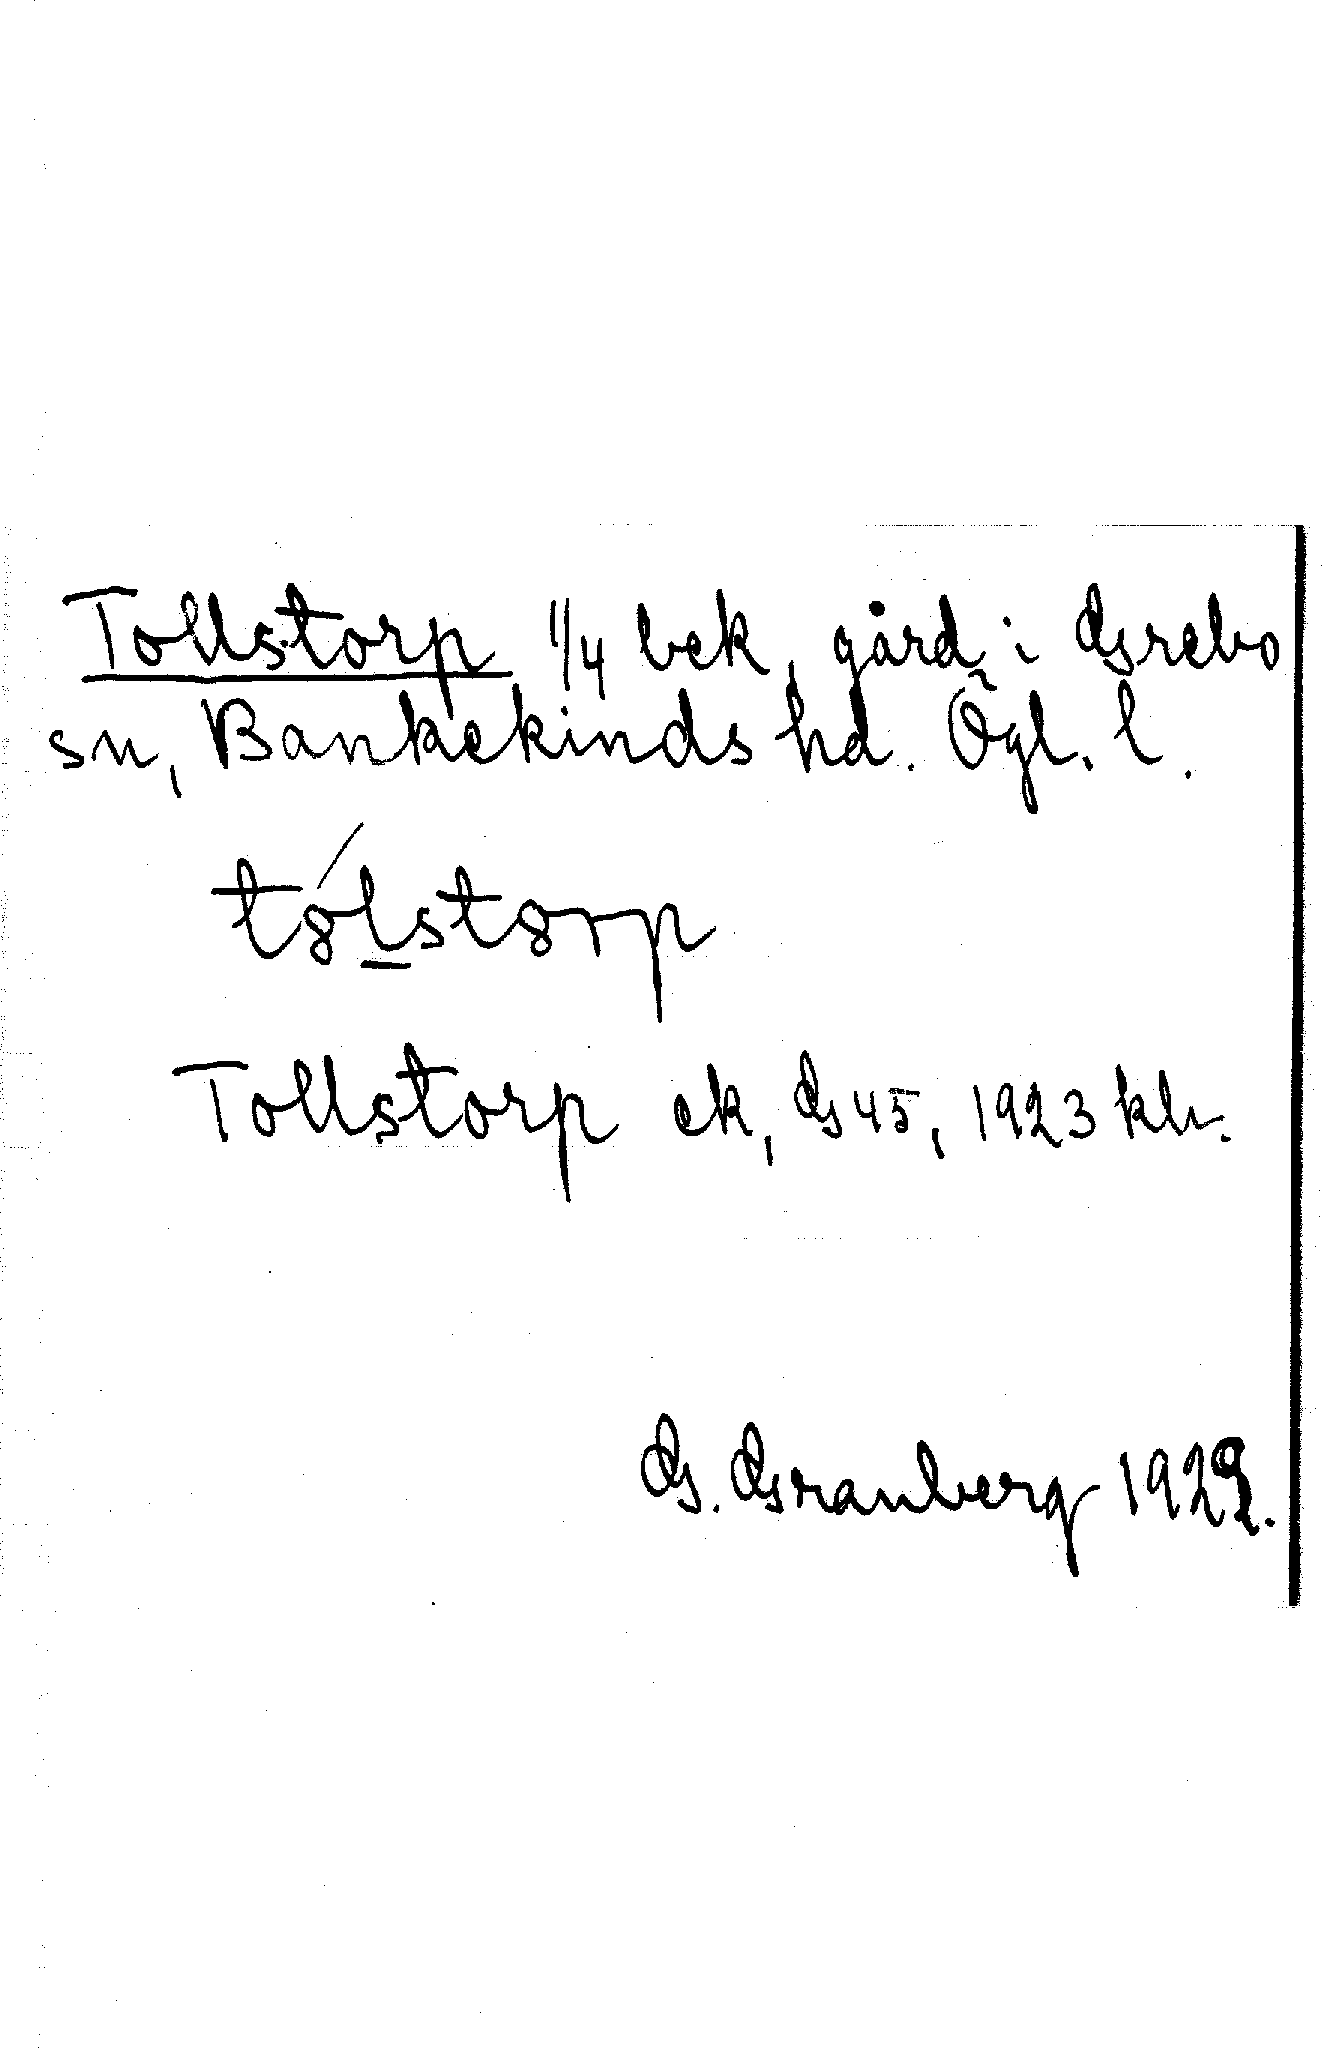 Tollstorp 1/4 bek, gård i Grebo
sn, Bankekinds hd. Ögl. l.
tólstorp
Tollstorp ek, G 45, 1923 klr.
G. Granberg 1929.